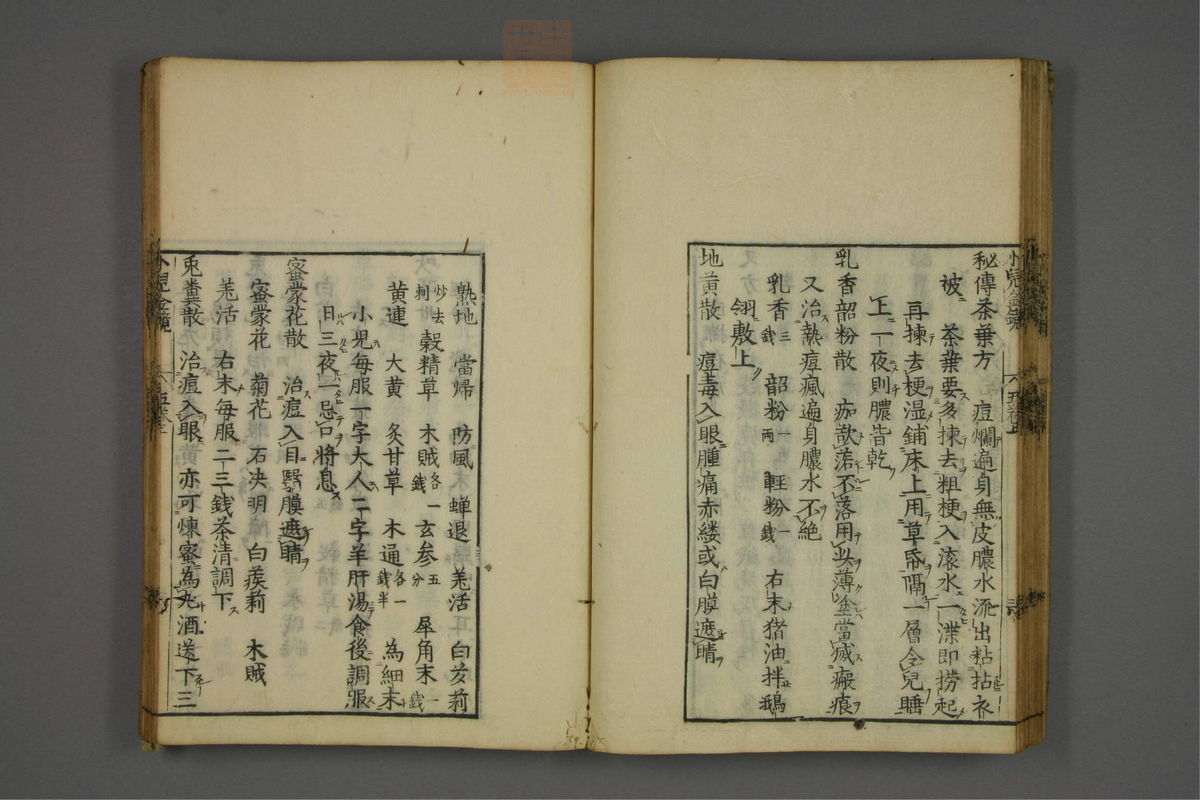 秘傳茶葉方 痘爛遍身無皮膿水流出粘拈衣
被 茶葉要多揀去粗梗入滚水一渫即撈起
再揀去梗湿鋪床上用草帋隔一層令兒睡
上一夜則膿皆乾
乳香韶粉散 痂㱿落不落用此薄塗當滅瘢痕
又治熱瘴瘋遍身膿水不絶
乳香三錢 韶粉一兩 輕粉一錢 右末猪油拌鵝
翎敷上
地黄散 痘毒入眼腫痛赤縷或白膜遮睛
熟地 當帰 防風 蝉退 羌活 白蒺莉
炒去刺 穀精草 木賊各一錢 玄参五分 犀角末一錢
黄連 大黄 炙甘草 木通各一錢半 為細末
小児毎服一字大人二字羊肝湯食後調服
日三夜一忌口將息
蜜蒙花散 治痘入目翳膜遮睛
蜜蒙花 菊花 石决明 白蒺莉 木賊
羌活 右末毎服二三錢茶清調下
兎糞散 治痘入眼亦可煉蜜為丸酒送下三